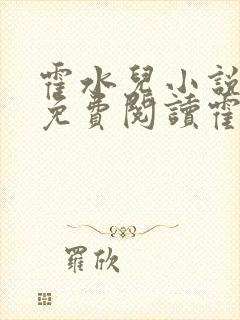 霍水兒小說
免費閱讀霍
羅欣